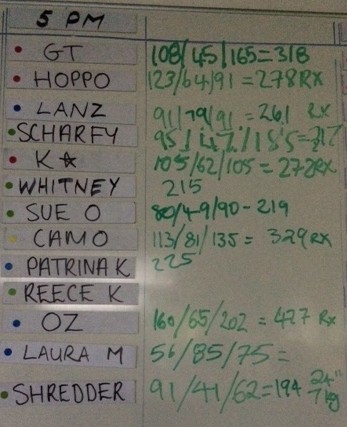 5 PM
GT 108/45/165=318
HOPPO 123/64/91=278RX
LANZ 91/79/91=261 RX
SCHARFY 95/47/155=
K☆ 105/62/105=272RX
WHITNEY 215
SUE O 80/49/90-219
CAMO 113/81/135=329RX
PATRINA K 225
REECE K
OZ 160/65/202=427 Rx
LAURA M 56/85/75=
SHREDDER 91/41/62=194 24" 7kg